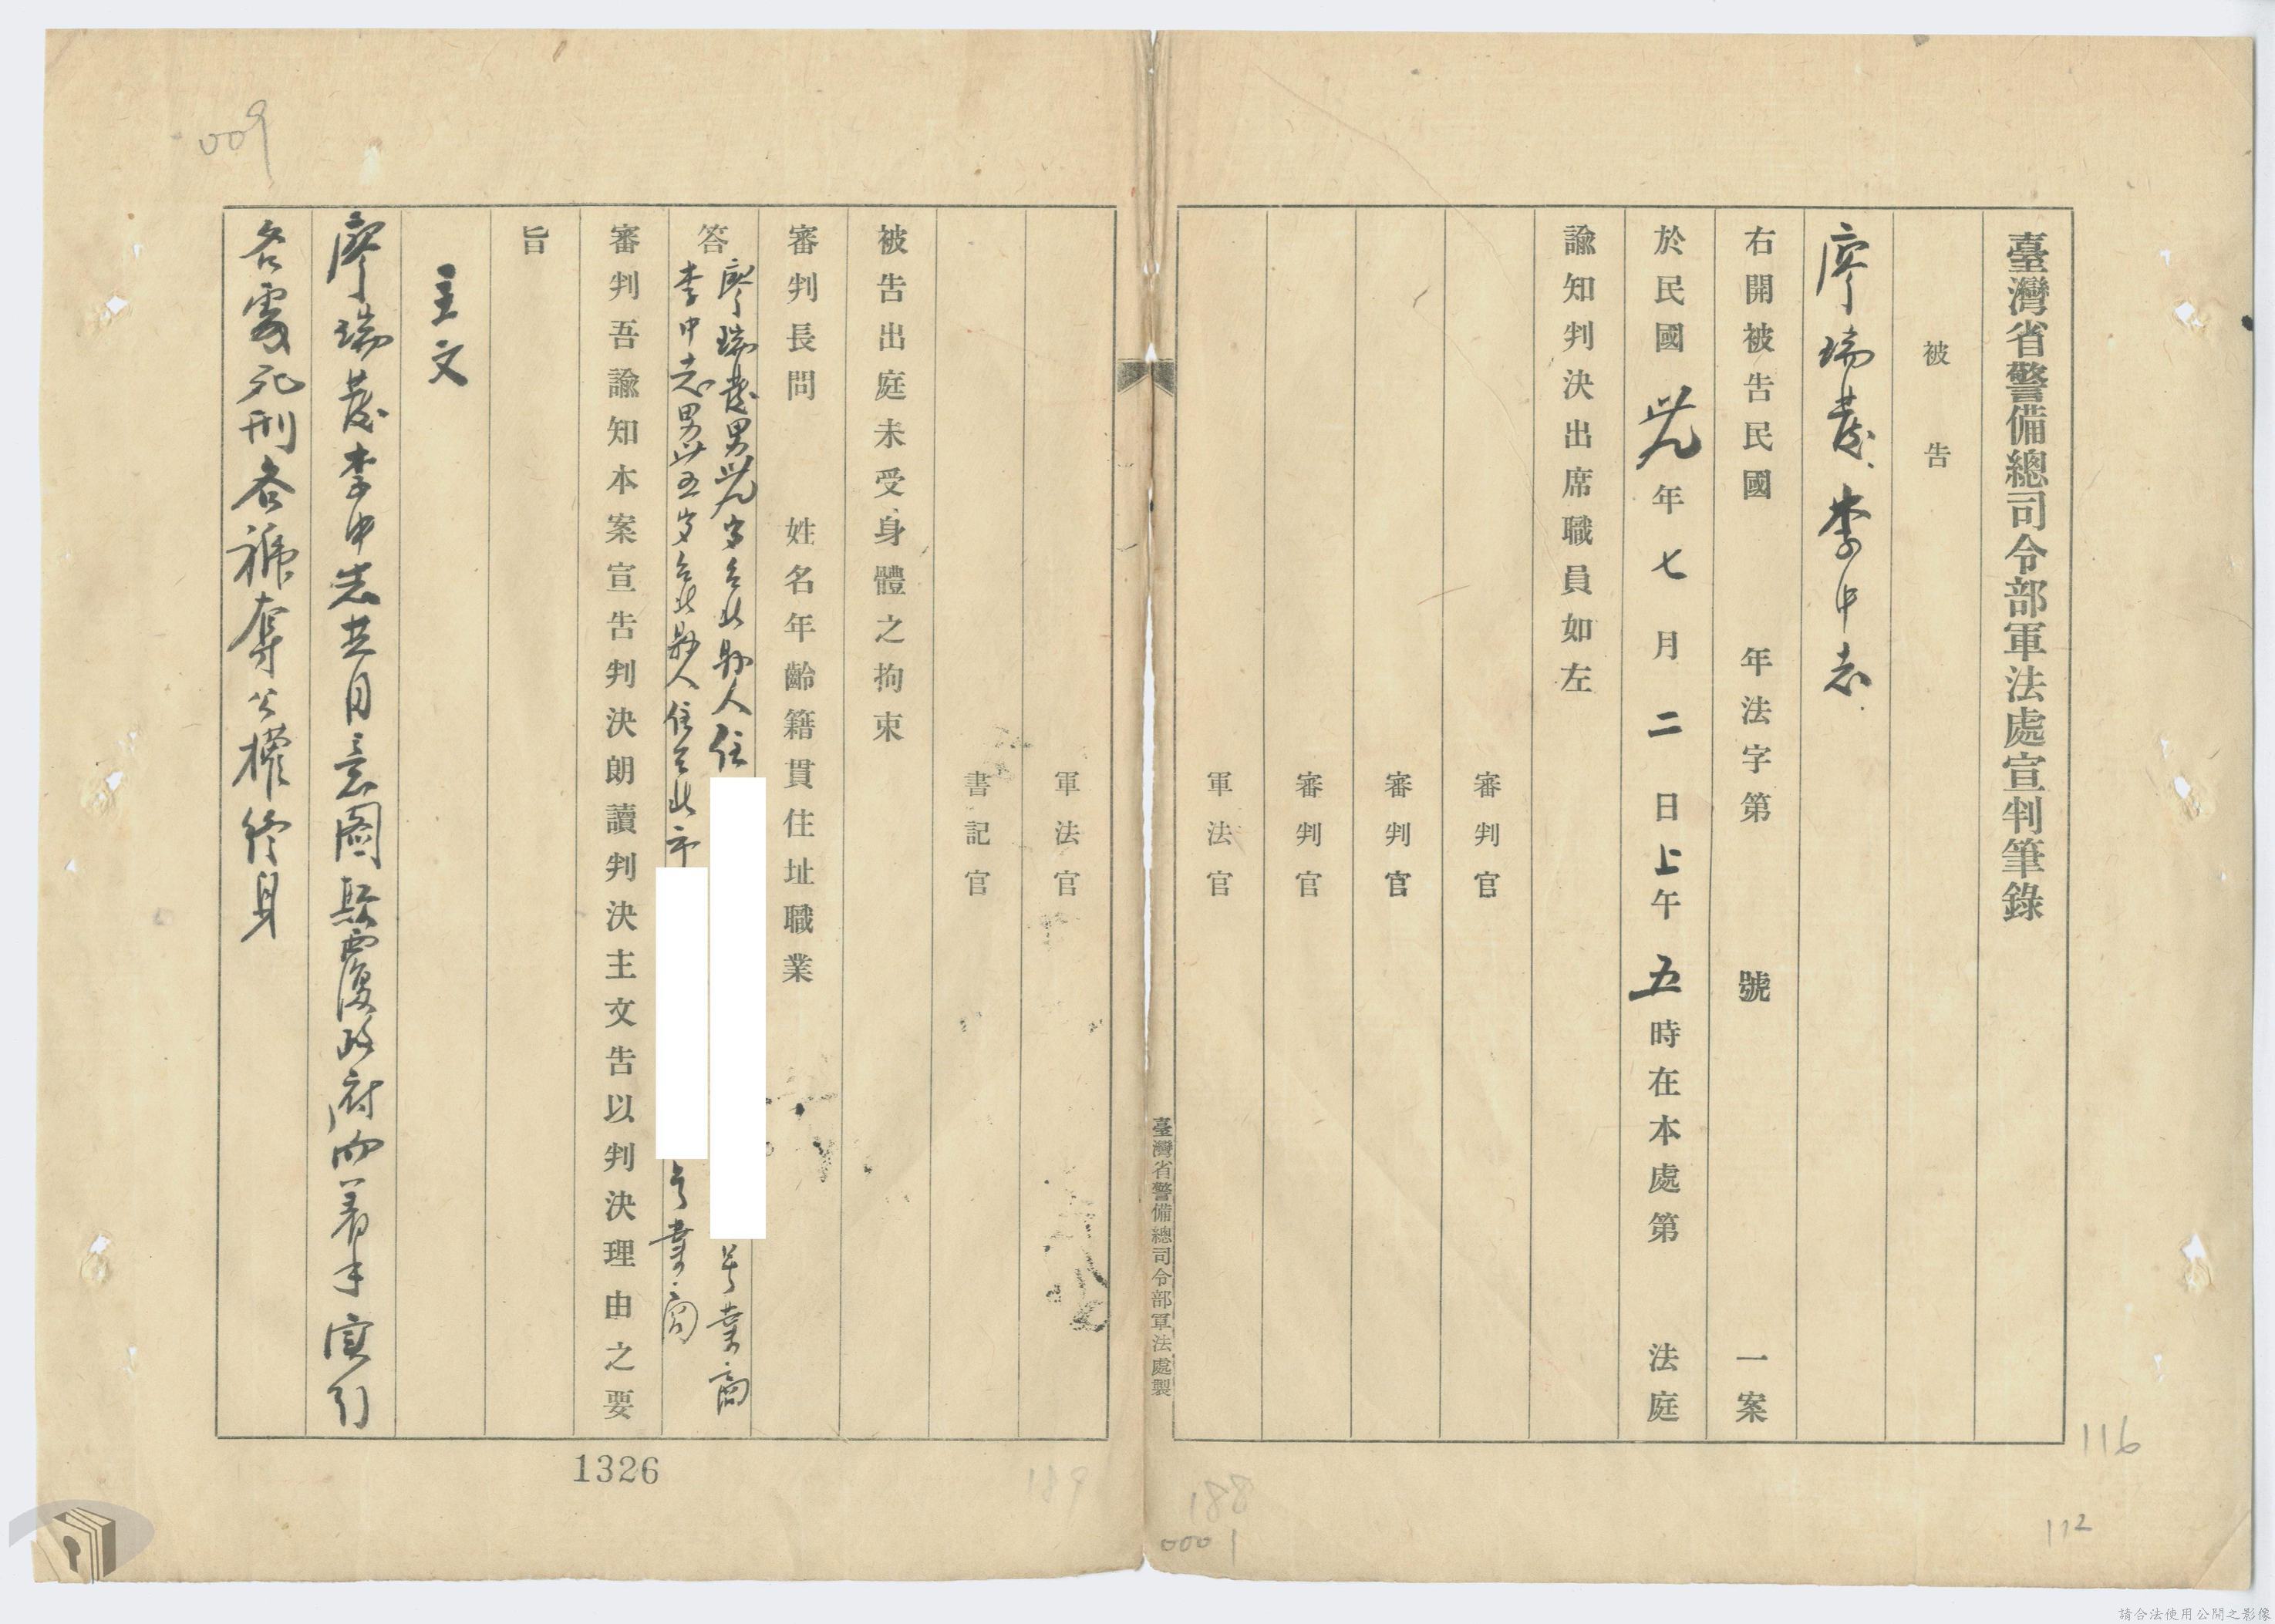 臺灣省警備總司令部軍法處宣判筆錄
被告
廖瑞發、李中志.
右開被告民國 年法字第 號 一案
於民國卅九年七月二日上午五時在本處第 法庭
諭知判決出席職員如左
審判官
審判官
審判官
軍法官
臺灣省警備總司令部軍法處製
軍法官
書記官
被告出庭未受身體之拘束
審判長問 姓名年齡籍貫住址職業
答
廖瑞發男卅九岁台北縣人住 号業商
李中志男卅五岁台北縣人住台北市 号業商
審判吾諭知本案宣告判決朗讀判決主文告以判決理由之要
旨
主文
廖瑞發李中志共同意圖顛覆政府而着手實行
各處死刑各褫奪公權終身
009
1326
189
188
0001
116
112
請合法使用公開之影像